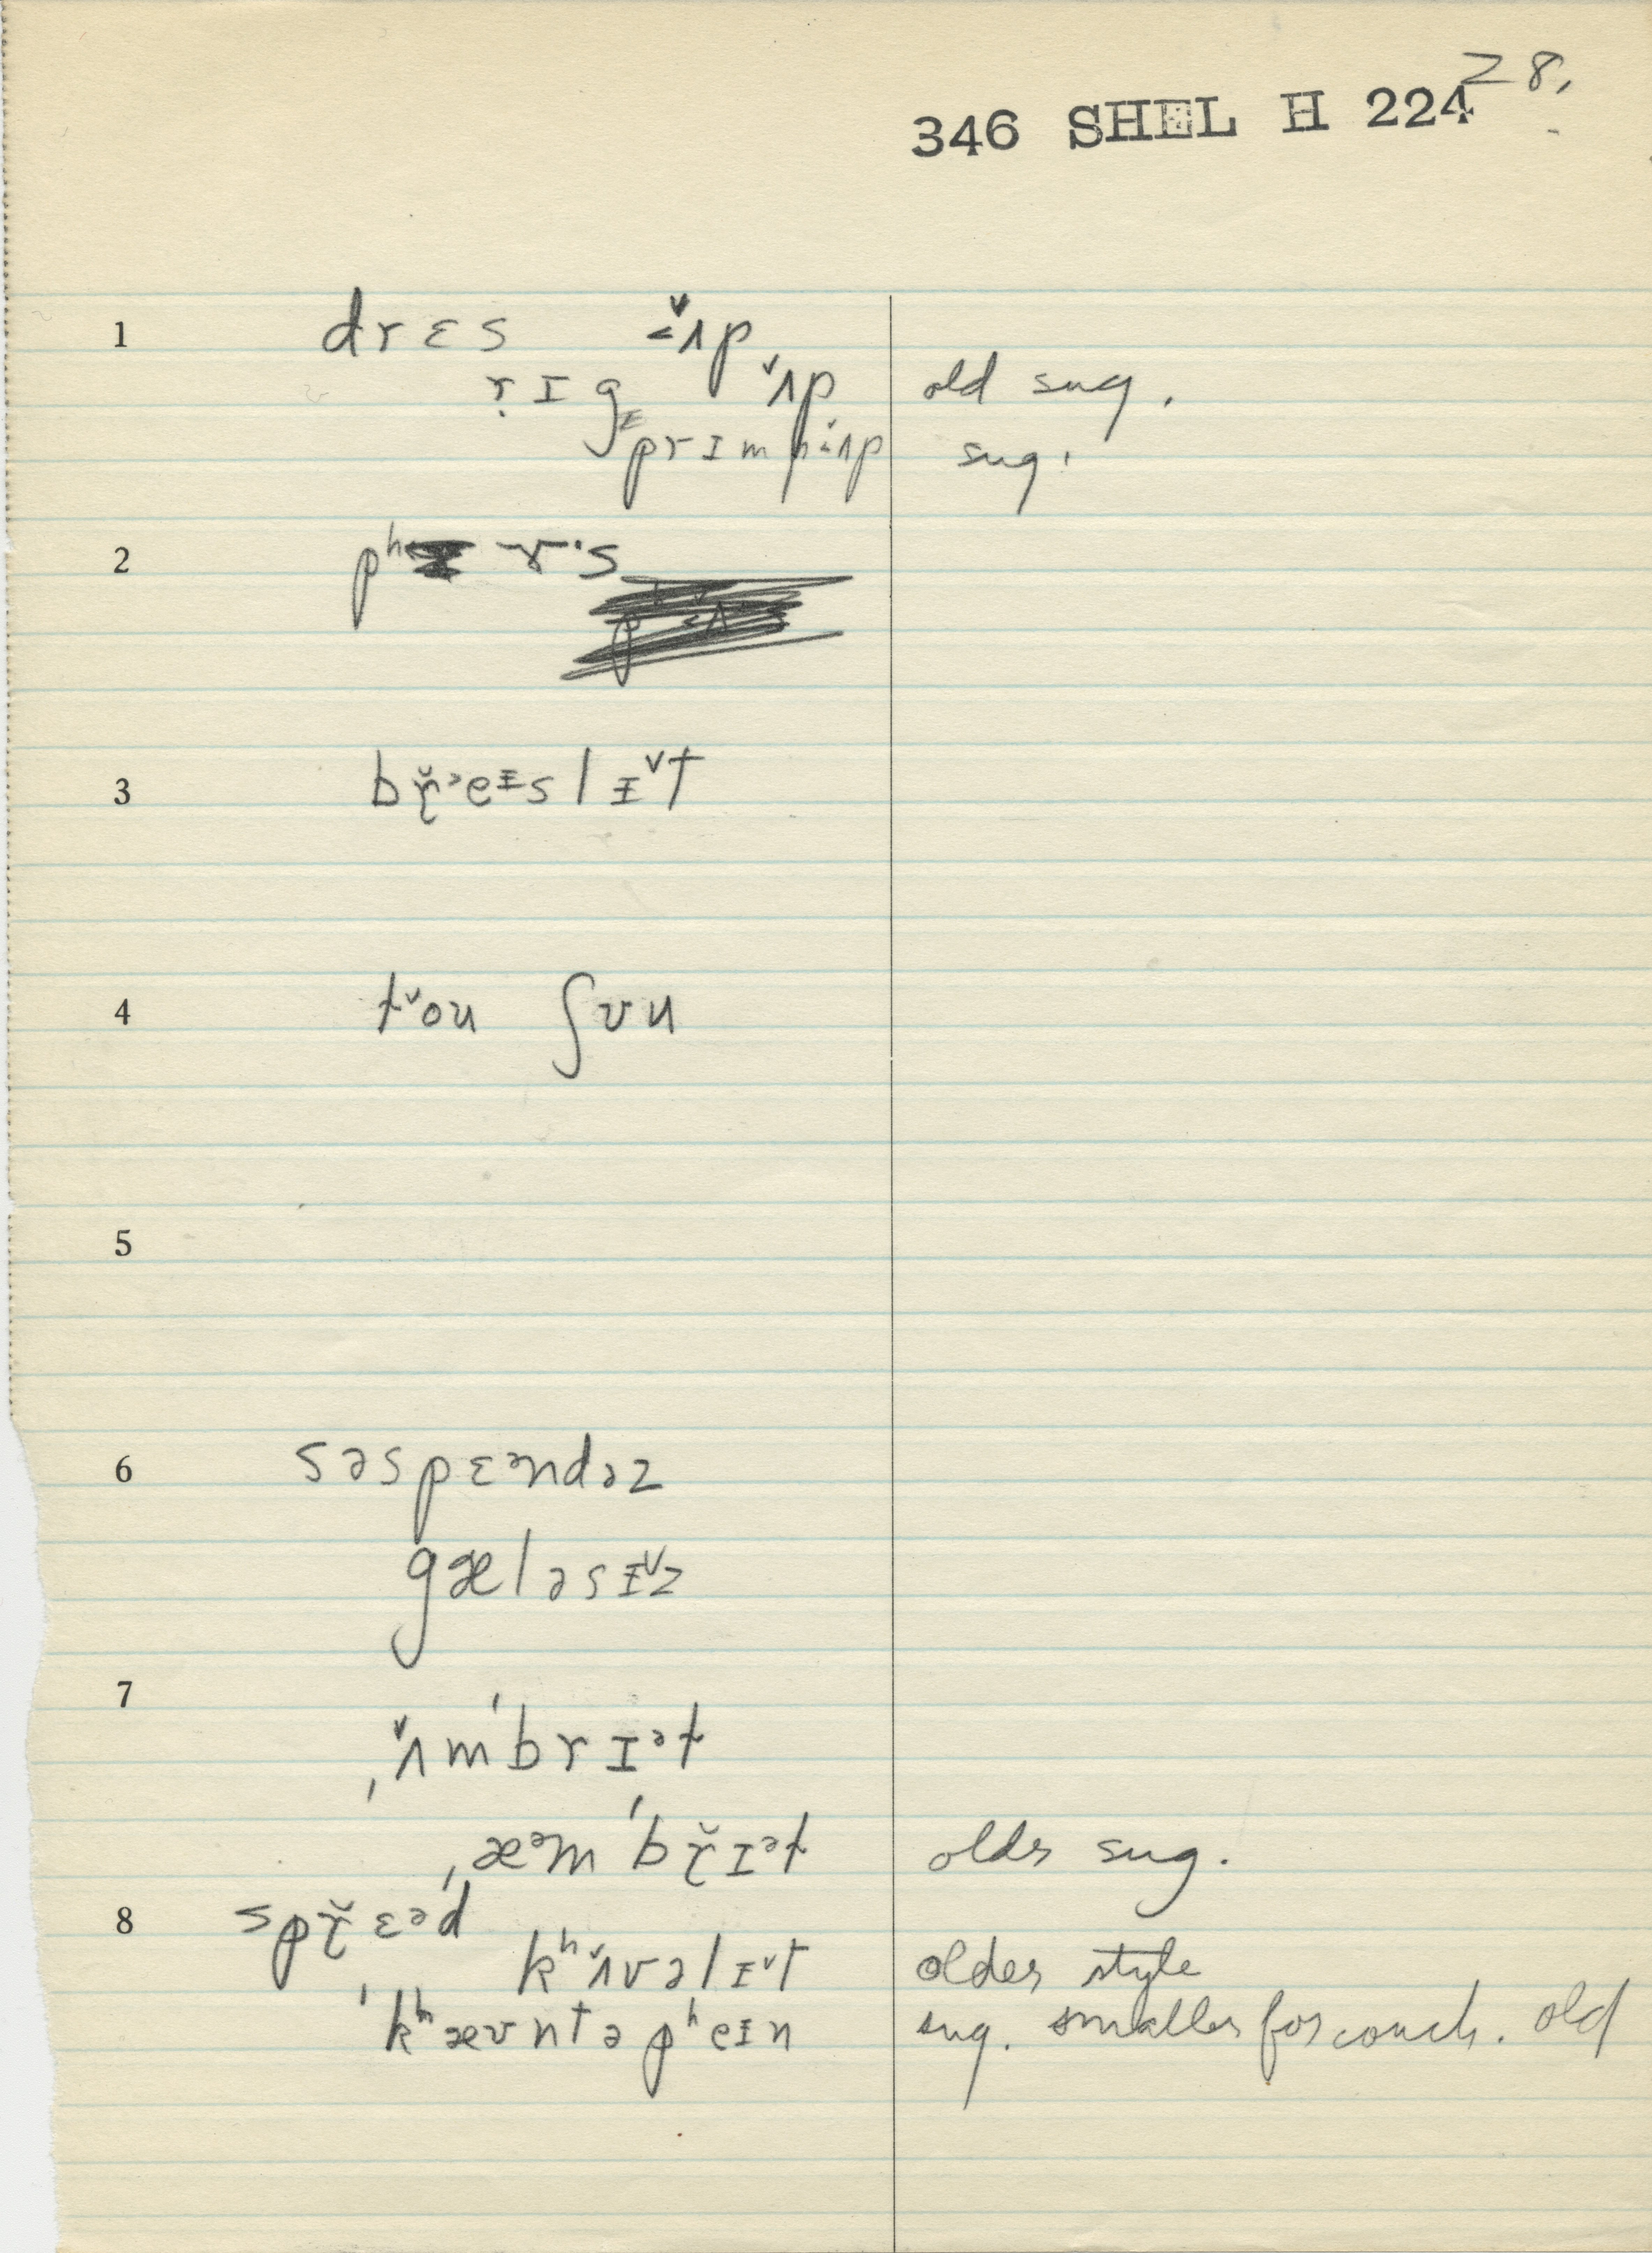 28.
346 SHEL H 224
1 drɛs ɨ̌ʌp
rɪg ʌ̌p old sug.
prɪmpɨʌp sug.
2 pʰɝ·s
3 bɽ̆ᵊeᵻslᵻ̌t
4 tˇou ʃʊu
5
6 səspɛᵊndəz
gæləsᵻˇz
7
ˌʌ̌mˈbrɪᵊt
ˌæᵊmˈbɽ̆ɪᵊt older sug.
8 spɽ̆ɛᵊd
kʰʌ̌vəlᵻˇt older style
ˈkʰæʊntəpʰeᵻn sug. smaller for couch. old